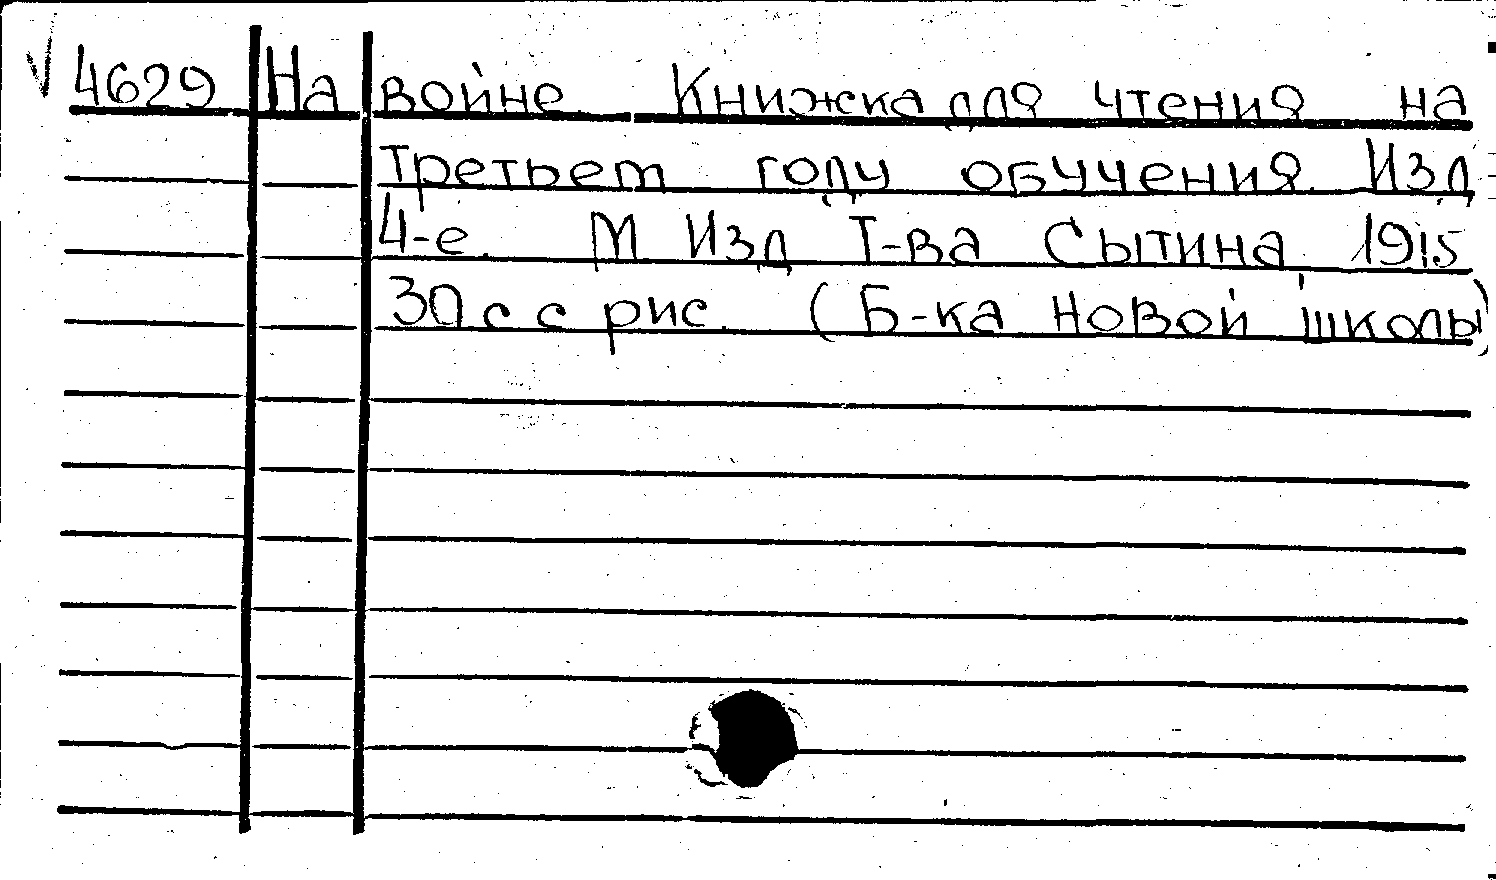 4629 На войне Книжка для чтения на
третьем году обучения. Изд
4-е. М Изд Т-ва Сытина 1915
30 с с рис. (Б-ка новой школы)